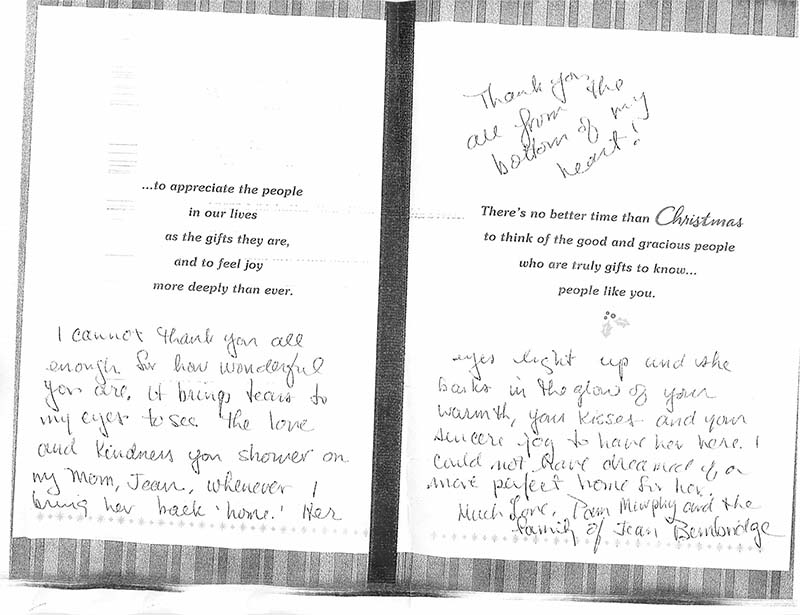 ...to appreciate the people
in our lives
as the gifts they are,
and to feel joy
more deeply than ever.
I cannot thank you all
enough for how wonderful
you are. It brings tears to
my eyes to see the love
and kindness you shower on
my Mom, Jean, whenever I
bring her back 'home.' Her
Thank you
all from the
bottom of my
heart!
There's no better time than Christmas
to think of the good and gracious people
who are truly gifts to know...
people like you.
eyes light up and she
basks in the glow of your
warmth, your kisses and your
sincere joy to have her here. I
could not have dreamed of a
more perfect home for her.
Much Love, Pam Murphy and the
family of Jean Bembridge